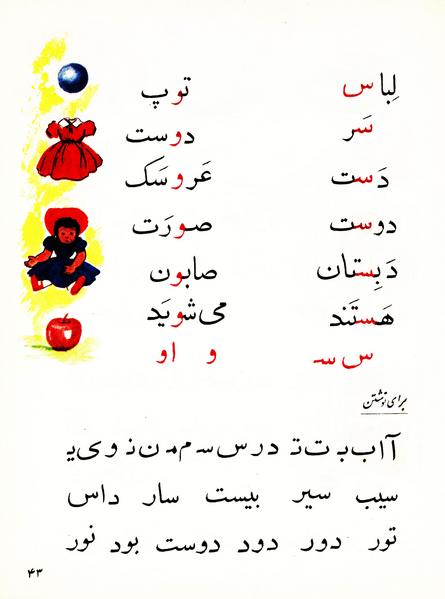 لِباس توپ
سَر دوست
دَست عَروسَک
دوست صورَت
دَبِستان صابون
هَستَند می‌شوَید
س سـ و او
برای نوشتن
آ ا ب بـ ت تـ د ر س سـ م مـ ن نـ و ی یـ
سیب سیر بیست سار داس
تور دور دود دوست بود نور
۴۳